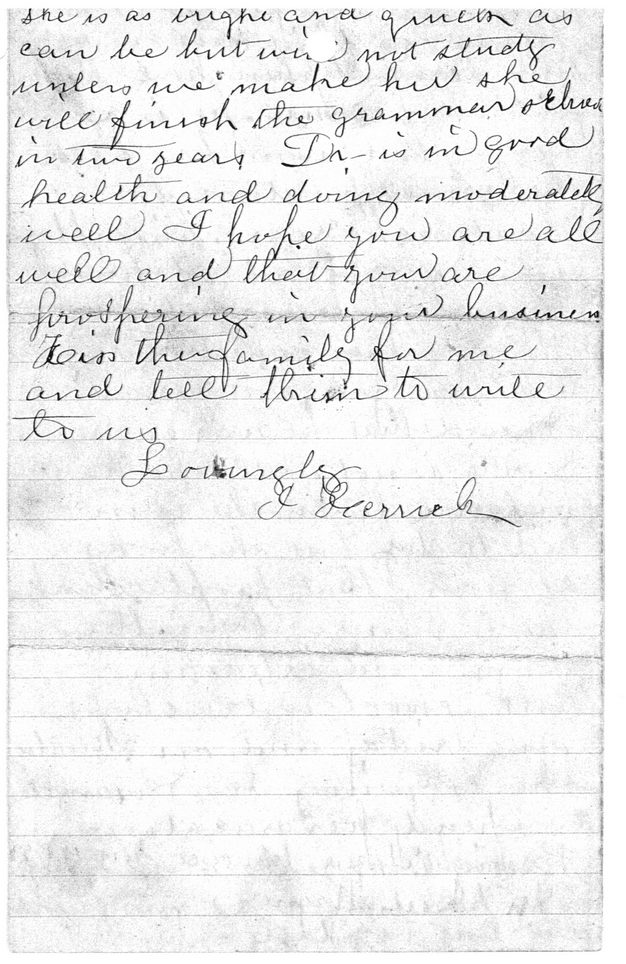 she is as bright and quick as
can be but will not study
unless we make her she
will finish the grammar school
in two years. Dr - is in good
health and doing moderately
well I hope you are all
well and that you are
prospering in your business
Kiss the family for me
and tell them to write
to us
Lovingly
J Herrick